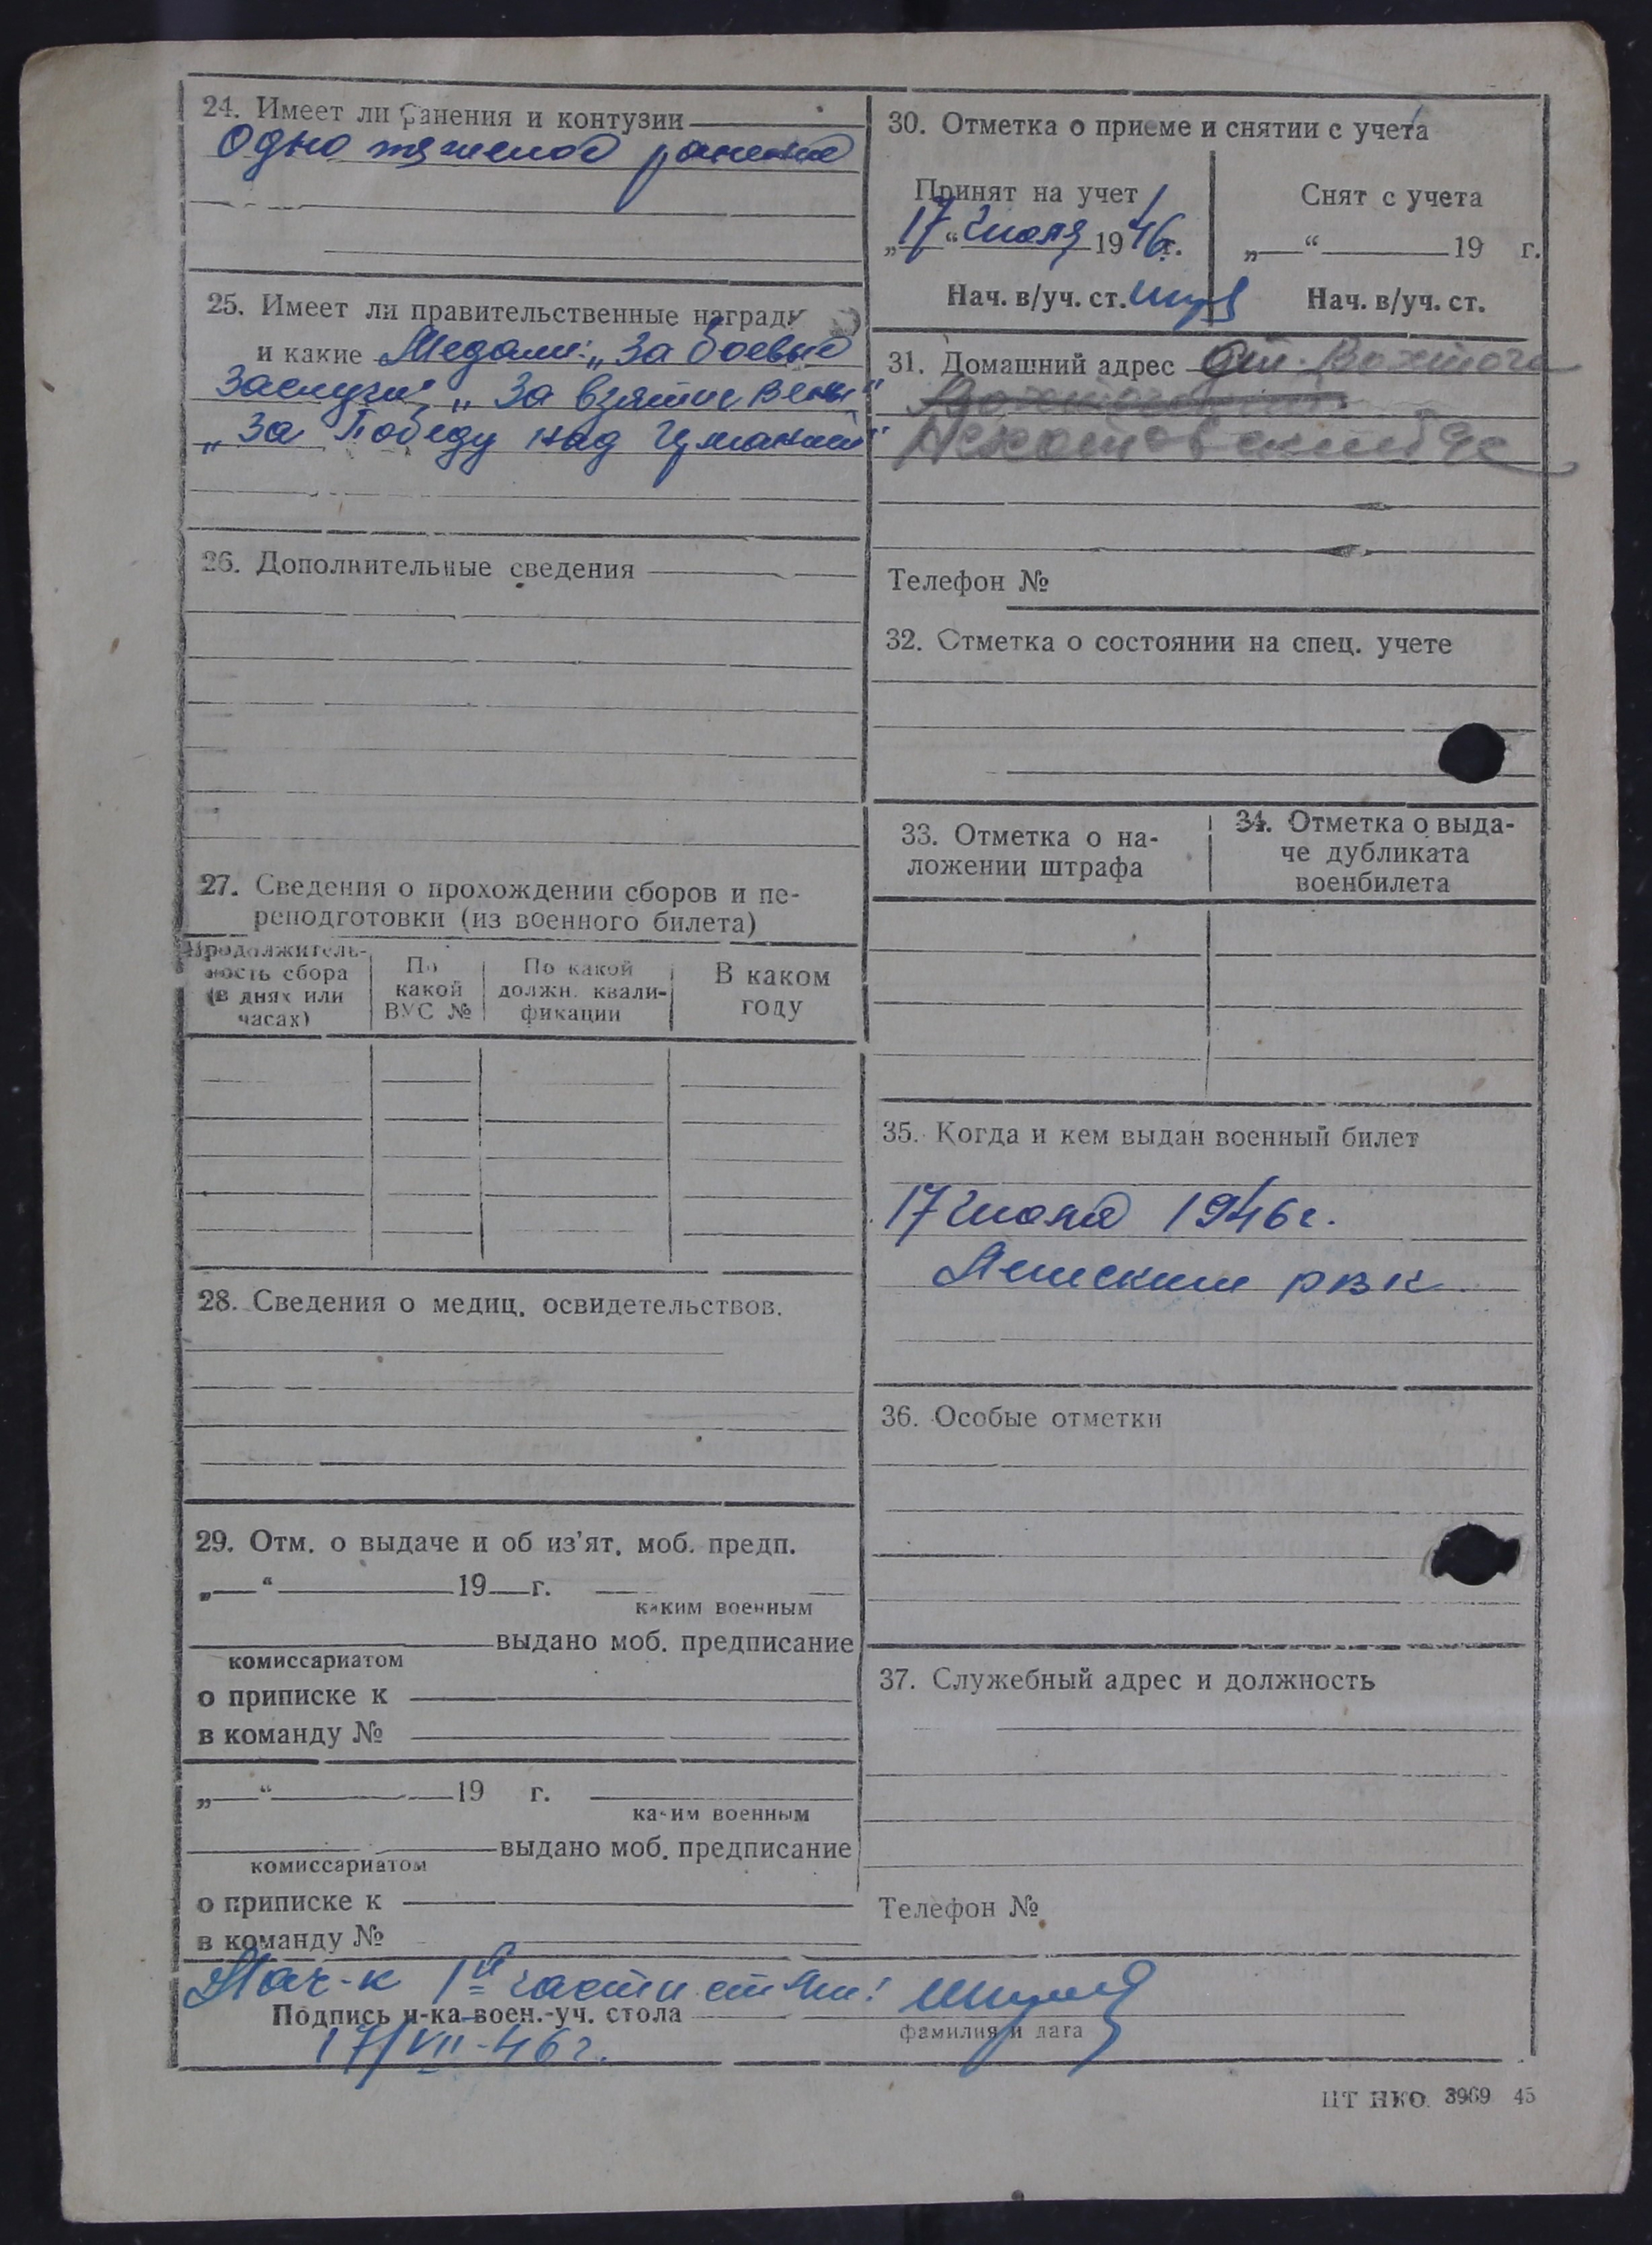 24. Имеет ли ранения и контузии
Одно тяжелое ранение
25. Имеет ли правительственные награды
и какие Медали: „За боевые
заслуги", „За взятие Вены"
„За Победу над Германией"
26. Дополнительные сведения
27. Сведения о прохождении сборов и пе-
реподготовки (из военного билета)
Продолжитель-
ность сбора
(в днях или
часах)
По
какой
ВУС №
По какой
должн. квали-
фикации
В каком
году
28. Сведения о медиц. освидетельствов.
29. Отм. о выдаче и об из'ят. моб. предп.
„ “ 19 г.
каким военным
выдано моб. предписание
комиссариатом
о приписке к
в команду №
„ “ 19 г.
каким военным
выдано моб. предписание
комиссариатом
о приписке к
в команду №
30. Отметка о приеме и снятии с учета
Принят на учет
„17“ июля 1946г.
Нач. в/уч. ст.
Снят с учета
„ “ 19 г.
Нач. в/уч. ст.
31. Домашний адрес ст. Вохтога
Телефон №
32. Отметка о состоянии на спец. учете
33. Отметка о на-
ложении штрафа
34. Отметка о выда-
че дубликата
военбилета
35. Когда и кем выдан военный билет
17 июля 1946г.
РВК
36. Особые отметки
37. Служебный адрес и должность
Телефон №
Нач-к 1й части
Подпись н-ка воен.-уч. стола
фамилия и дата
17/VII-46г.
ЦТ НКО. 3969 45